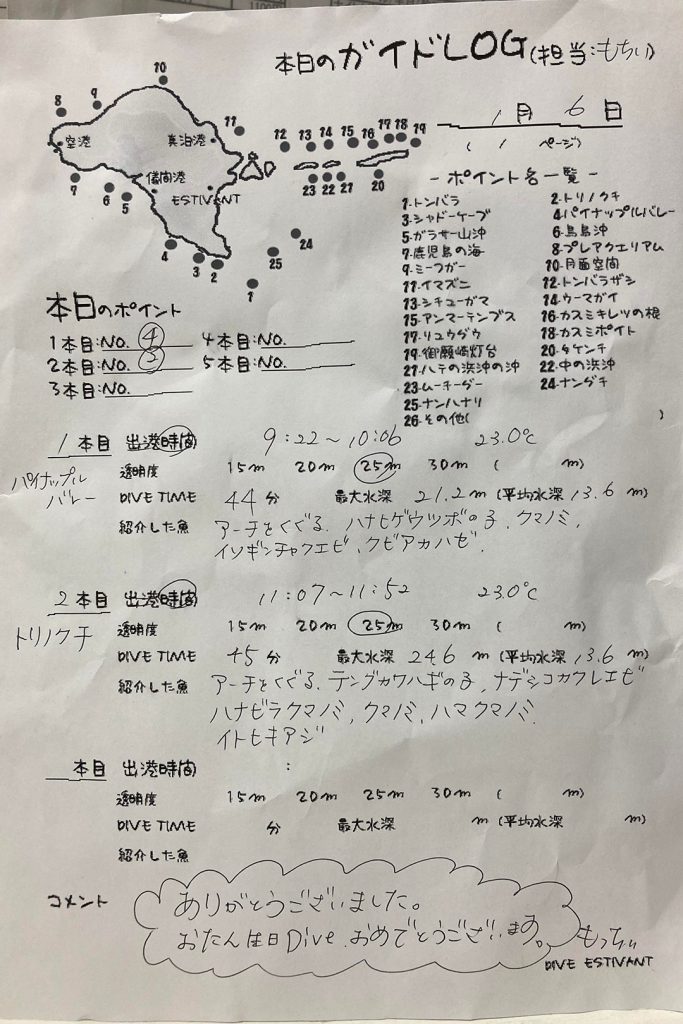 本日のガイドLOG(担当:もちぃ)
1月 6日
( 1 ページ)
10
9
8
空港
真泊港
儀間港
ESTIVANT
7
6
5
4
3
2
1
11
12
13
14
15
16
17
18
19
23
22
21
20
24
25
-ポイント名一覧-
1.トンバラ 2.トリノクチ
3.シャドーケーブ 4.パイナップルバレー
5.ガラサー山沖 6.鳥島沖
7.鹿児島の海 8.プレアクエリアム
9.ミーフガー 10.月面空間
11.イマズニ 12.トンバラザシ
13.シチューガマ 14.ウーマガイ
15.アンマーテンプス 16.カスミキレツの根
17.リュウダウ 18.カスミポイト
19.御願崎灯台 20.タケンチ
21.ハテの浜沖の沖 22.中の浜沖
23.ムーチーダー 24.ナンダキ
25.ナンハナリ
26.その他( )
本日のポイント
1本目:NO. ④ 4本目:NO.
2本目:NO. ② 5本目:NO.
3本目:NO.
1 本目 出港時間 9:22〜10:06 23.0℃
パイナップルバレー
透明度 15m 20m 25m 30m ( m)
DIVE TIME 44 分 最大水深 21.2 m (平均水深 13.6 m)
紹介した魚 アーチをくぐる、ハナヒゲウツボの子、クマノミ、
イソギンチャクエビ、クビアカハゼ.
2 本目 出港時間 11:07〜11:52 23.0℃
トリノクチ
透明度 15m 20m 25m 30m ( m)
DIVE TIME 45 分 最大水深 24.6 m (平均水深 13.6 m)
紹介した魚 アーチをくぐる、テングカワハギの子、ナデシコカクレエビ
ハナビラクマノミ、クマノミ、ハマクマノミ.
イトヒキアジ
本目 出港時間 :
透明度 15m 20m 25m 30m ( m)
DIVE TIME 分 最大水深 m (平均水深 m)
紹介した魚
コメント
ありがとうございました。
おたん生日Dive おめでとうございます。
もっちぃ
DIVE ESTIVANT